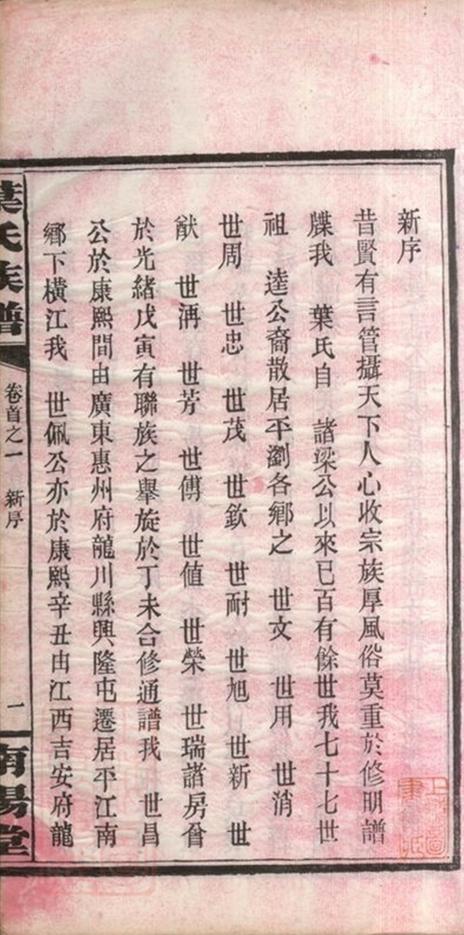 新序
昔賢有言管攝天下人心收宗族厚風俗莫重於修明譜
牒我 葉氏自 諸梁公以來已百有餘世我七十七世
祖 逵公裔散居平瀏各鄉之 世文 世用 世消
世周 世忠 世茂 世欽 世耐 世旭 世新 世
猷 世洅 世芳 世傅 世值 世榮 世瑞諸房曾
於光緒戊寅有聯族之舉旋於丁未合修通譜我 世昌
公於康熙間由廣東惠州府龍川縣興隆屯遷居平江南
鄉下橫江我 世佩公亦於康熙辛丑由江西吉安府龍
葉氏族譜
卷首之一 新序
一
南陽堂